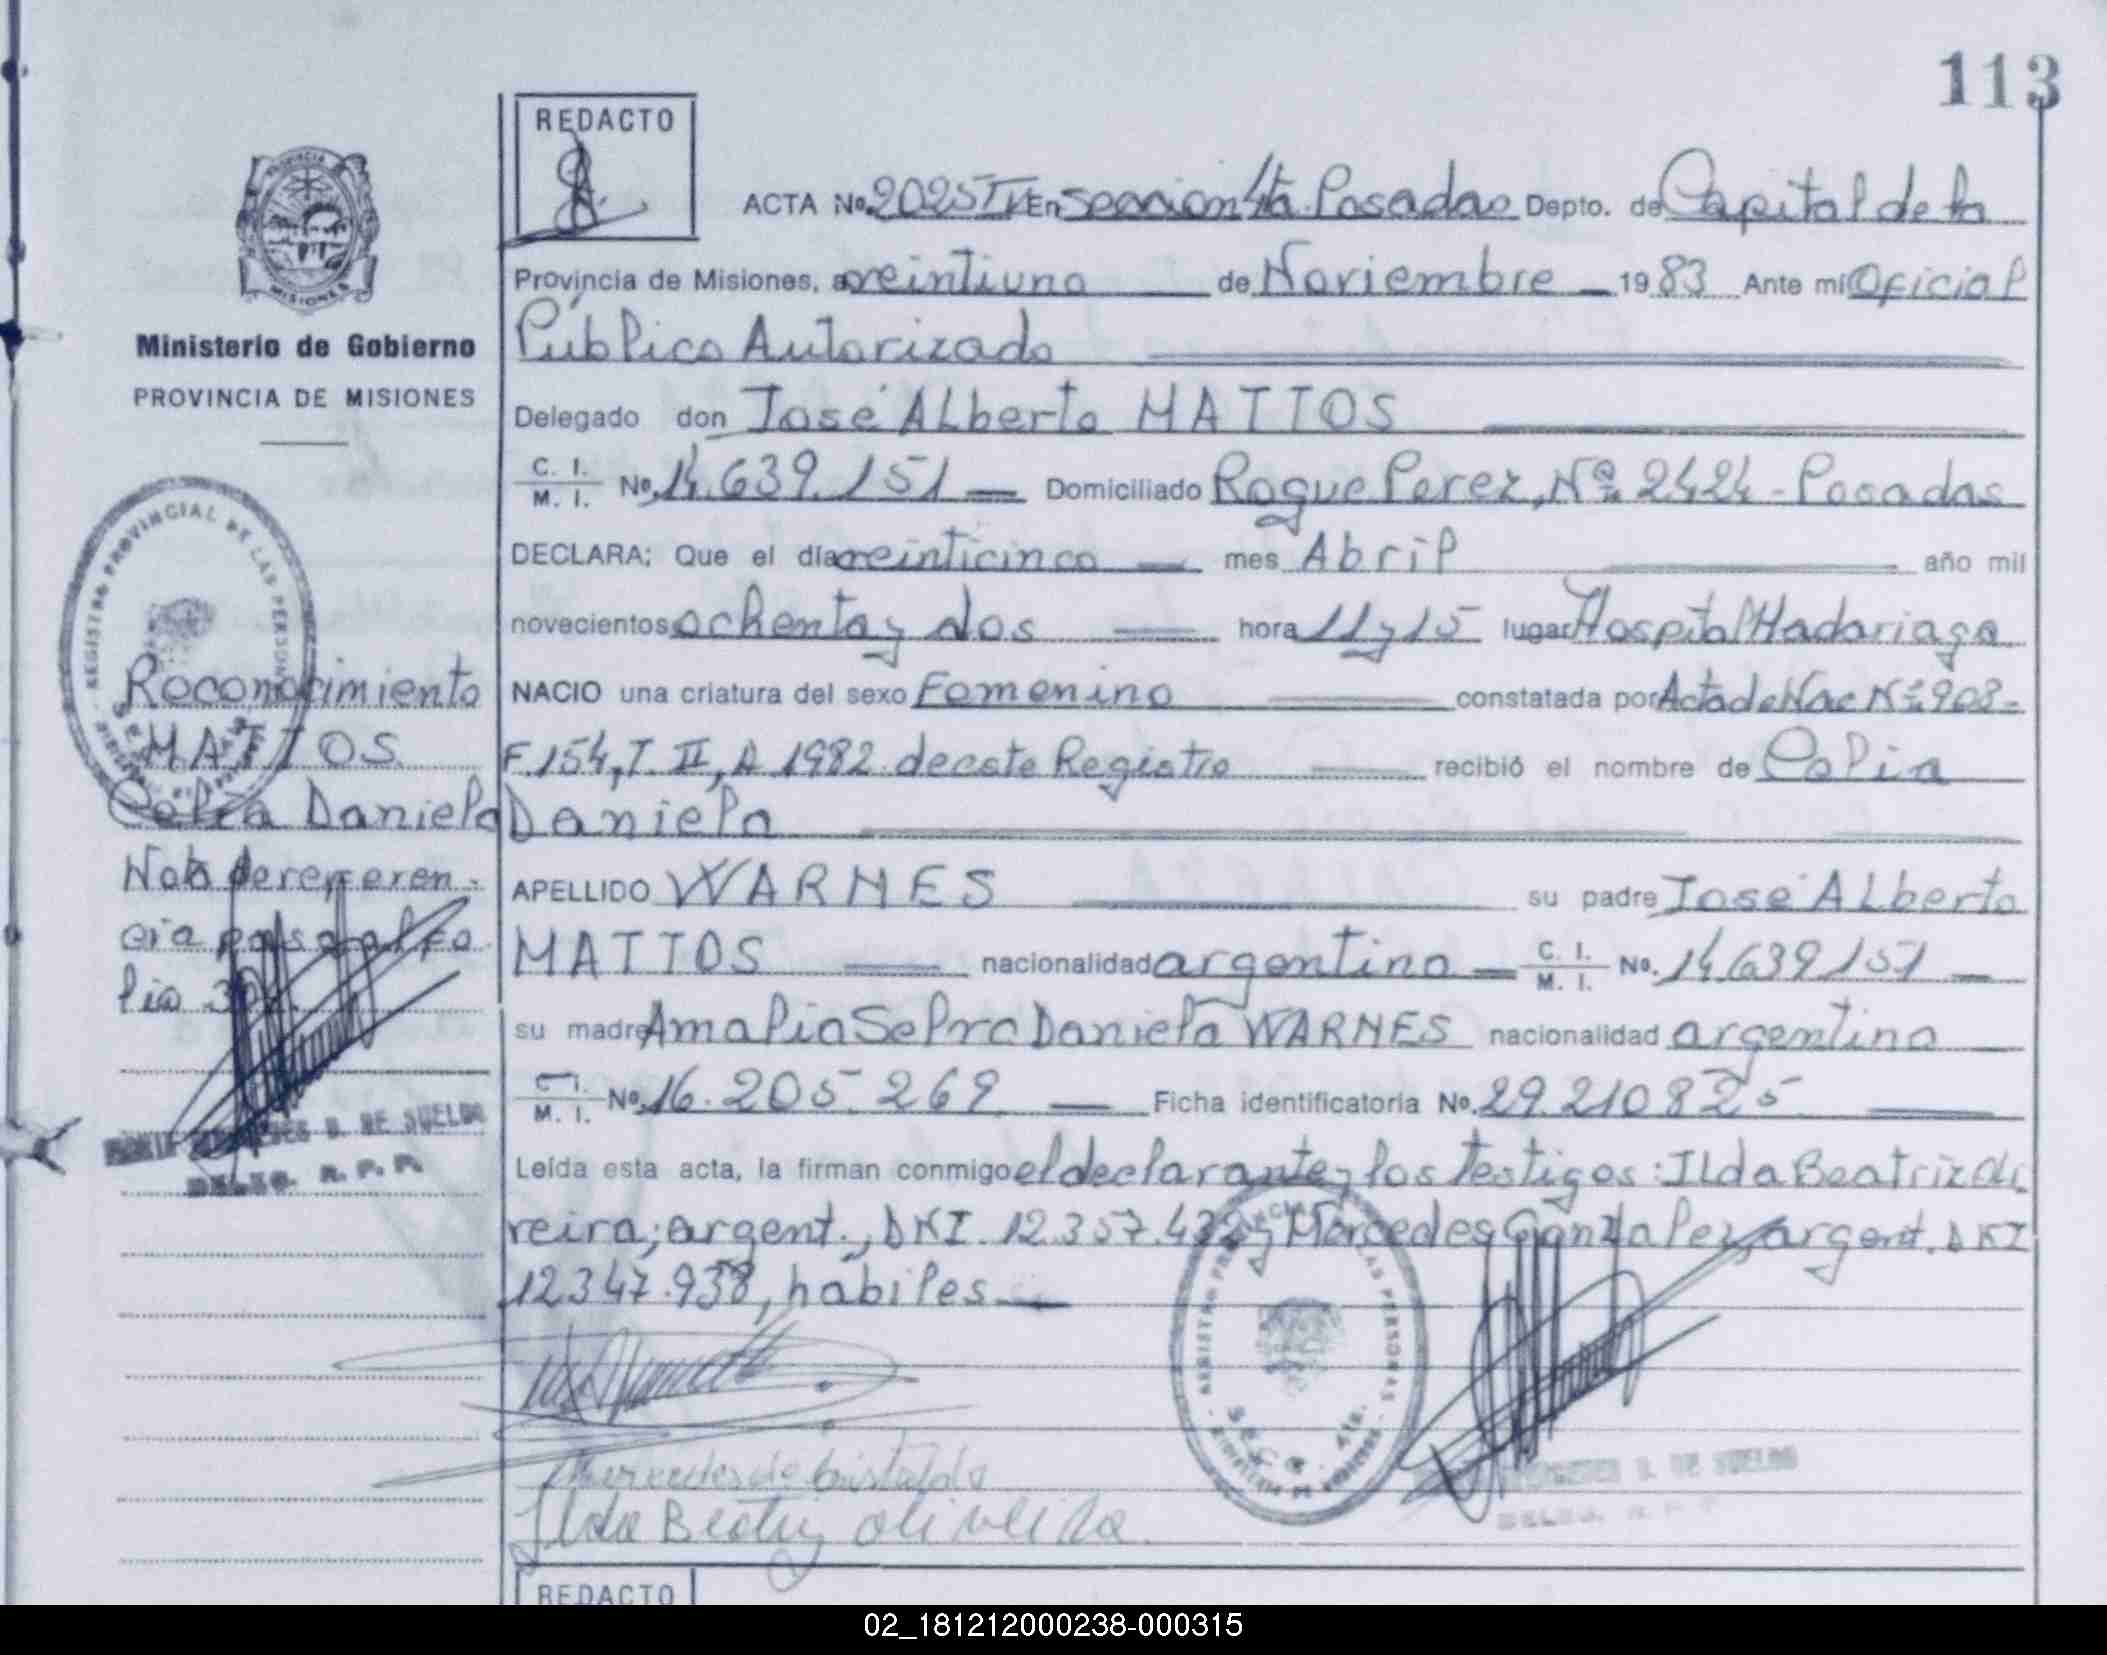 113
REDACTO
ACTA No. 2025 T IV En sección 4ta. Posadas Depto. de Capital de la
Provincia de Misiones, a veintiuno de Noviembre 19 83 Ante mí Oficial
Público Autorizado
Delegado don José Alberto MATTOS
C. I. / M. I. No. 14.639.151 Domiciliado Roque Perez, Nº 2424 - Posadas
DECLARA; Que el día veinticinco mes Abril año mil
novecientos ochenta y dos hora 11 y 15 lugar Hospital Madariaga
NACIO una criatura del sexo Femenino constatada por Acta de Nac Nº 908-
F. 154, T. II, A 1982 de este Registro recibió el nombre de Celia
Daniela
APELLIDO WARNES su padre José Alberto
MATTOS nacionalidad argentino C. I. / M. I. No. 14.639.151
su madre Amalia Daniela WARNES nacionalidad argentina
C. I. / M. I. No. 16.205.269 Ficha identificatoria No. 29.210825
Leída esta acta, la firman conmigo el declarante y los testigos: Ilda Beatriz Oli
veira; argent., DNI. 12.357. y Mercedes Gonzalez, argent. DNI
12.347.938, hábiles
Ilda Beatriz Oliveira
REDACTO
PROVINCIA
MISIONES
Ministerio de Gobierno
PROVINCIA DE MISIONES
REGISTRO PROVINCIAL DE LAS PERSONAS
Reconocimiento
MATTOS
Celia Daniela
Nota de referen-
cia pasa al fo
lio
DE SUELDO
DELEG. R. P. P.
REGISTRO PROVINCIAL DE LAS PERSONAS
SECC. 4ta.
DE SUELDO
DELEG. R. P. P.
02_181212000238-000315